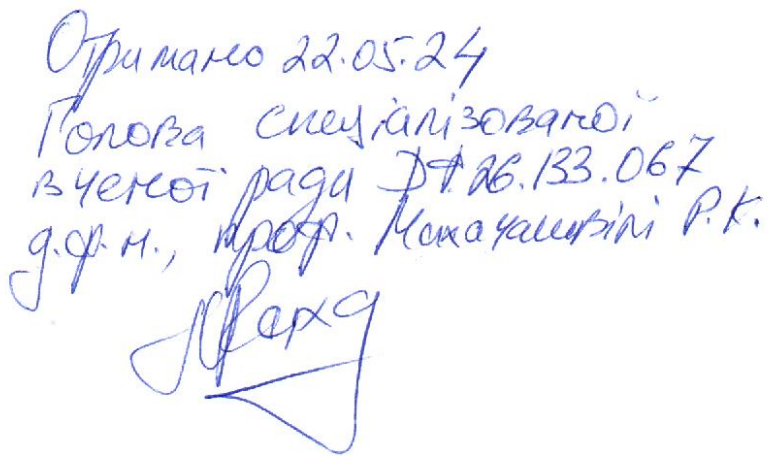 Отримано 22.05.24
Голова спеціалізованої
вченої ради ДФ 26.133.067
д.ф.н., проф. Махачашвілі Р.К.